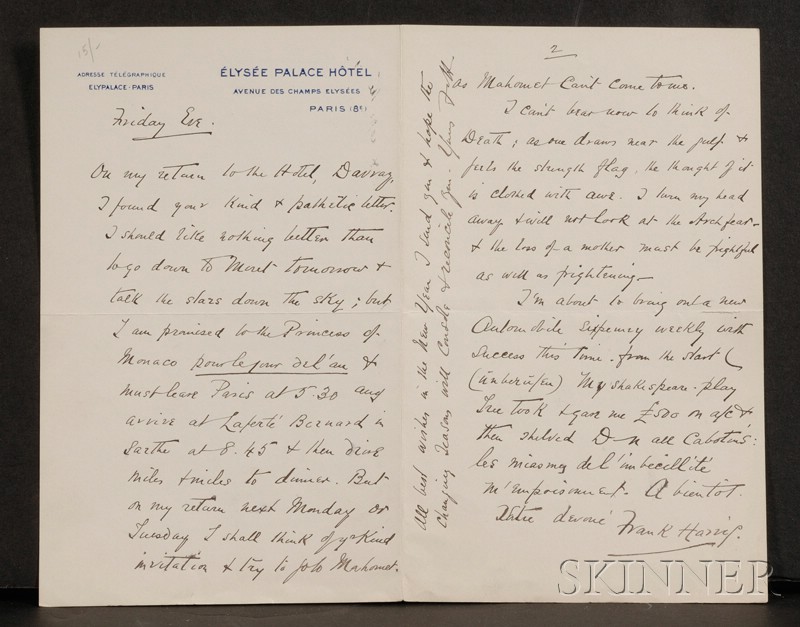 15/-
ADRESSE TÉLÉGRAPHIQUE
ELYPALACE-PARIS
ÉLYSÉE PALACE HÔTEL
AVENUE DES CHAMPS ELYSÉES
PARIS (8e)
Friday Eve.
On my return to the Hotel, Davray,
I found your kind & pathetic letter.
I should like nothing better than
to go down to Moret tomorrow &
talk the stars down the sky; but
I am promised to the Princess of
Monaco pour le jour de l'an &
must leave Paris at 5.30 and
arrive at Laferté Bernard in
Sarthe at 8.45 & then drive
miles & miles to dinner. But
on my return next Monday or
Tuesday I shall think of yr kind
invitation & try to job Mahomet.
2
as Mahomet can't come to me.
I can't bear now to think of
Death; as one draws near the gulf &
feels the strength flag, the thought of it
is clothed with awe. I turn my head
away & will not look at the Archfear-
& the loss of a mother must be frightful
as well as frightening-
I'm about to bring out a new
Automobile sixpenny weekly with
success this time from the start (
(unberufen) My Shakespeare-play
Tree took & gave me £500 on a/c &
then shelved D-n all Cabotins:
les miasmes de l'imbécillité
m'empoisonnent. A bientot.
Votre devoué Frank Harris.
All best wishes in the New Year I send you & hope the
changing seasons will console & reconcile you. Yours F.H.
SKINNER